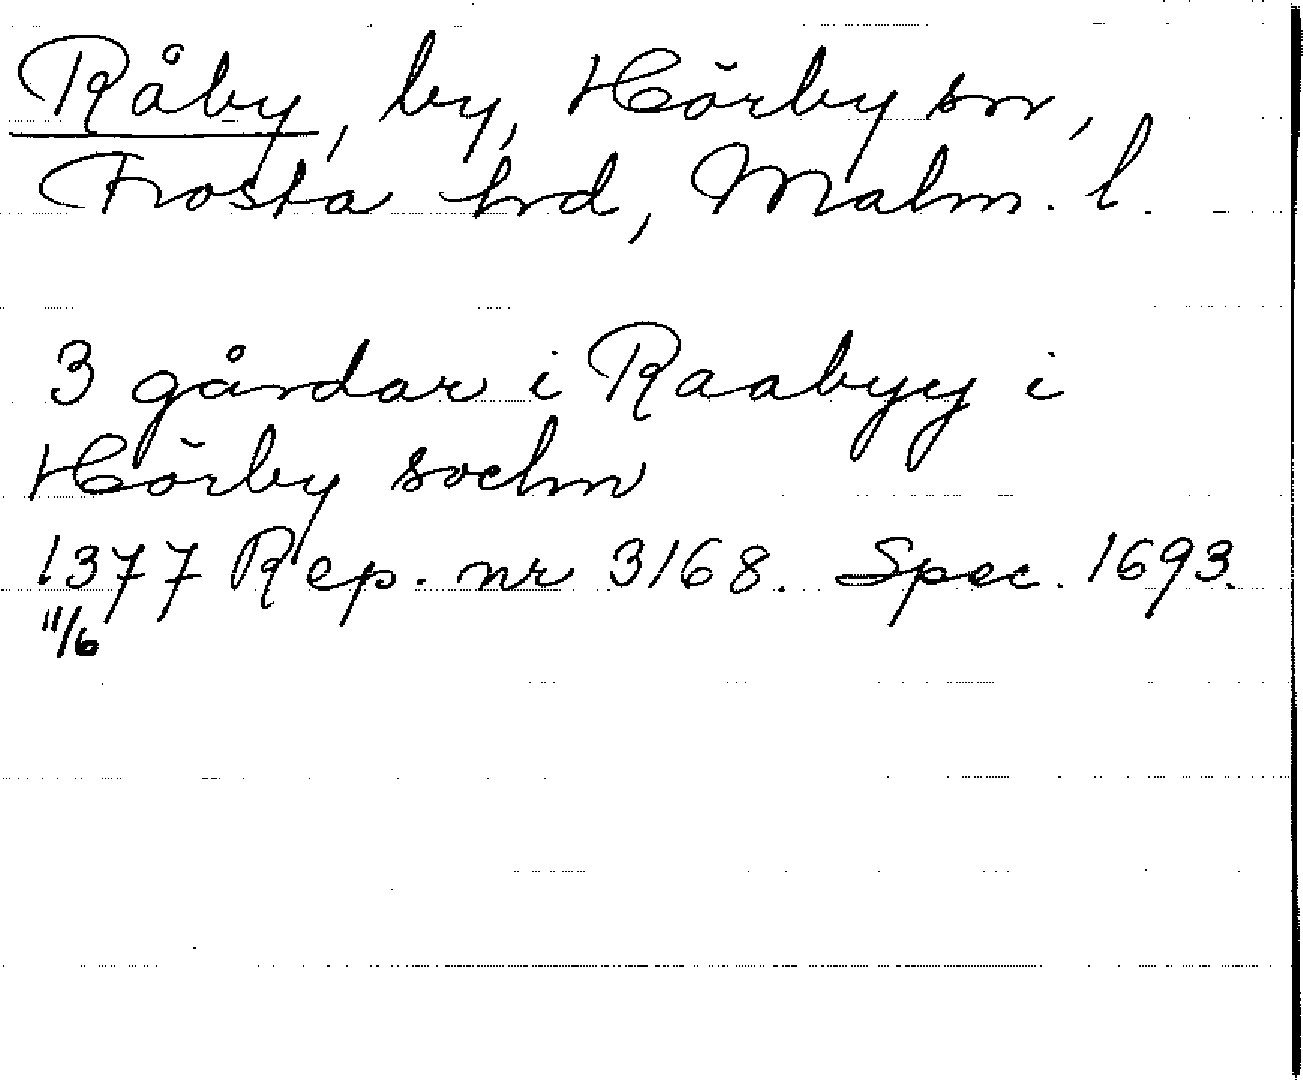 Råby, by, Hörby sn,
Frosta hrd, Malm. l.
3 gårdar i Raabyy i
Hörby soehn
1377 Rep. nr 3168. Spec. 1693.
11/6